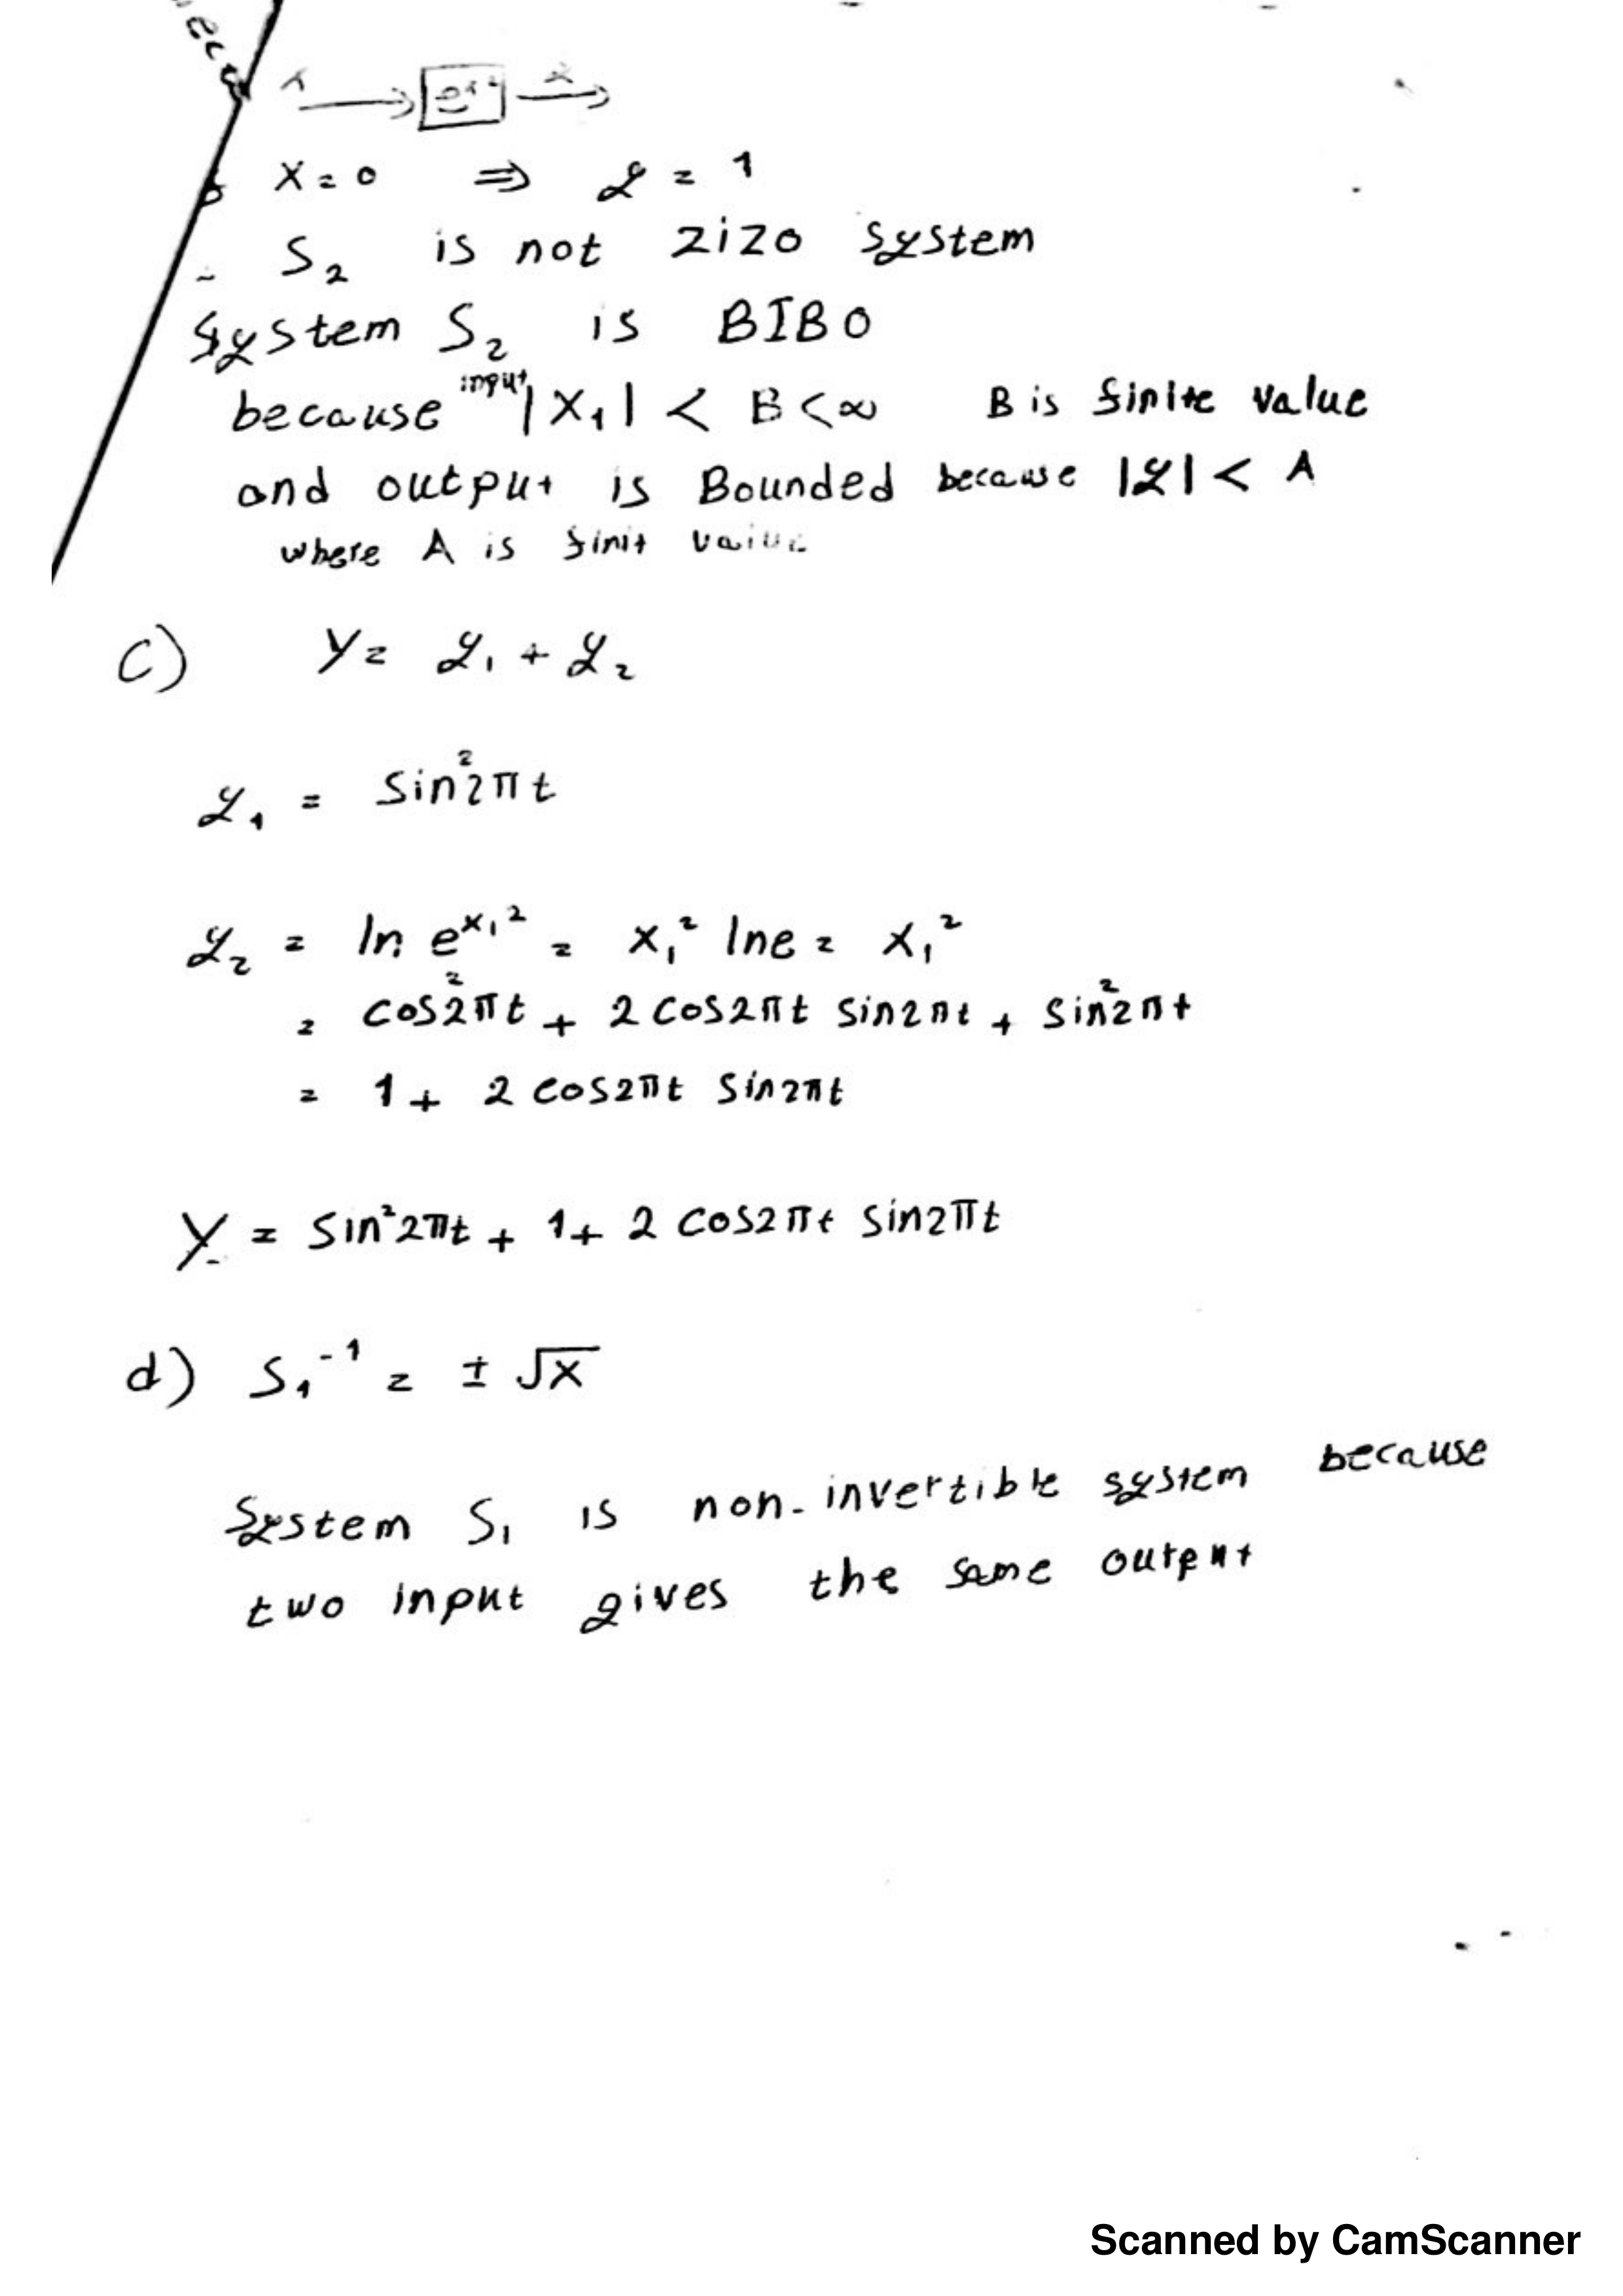 x → e^x² →
X = 0 ⇒ y = 1
S₂ is not zizo system
System S₂ is BIBO
because input |X₁| < B < ∞ B is finite value
and output is Bounded because |y| < A
where A is finit value
C) Y = y₁ + y₂
y₁ = Sin²2πt
y₂ = ln e^x₁² = x₁² lne = x₁²
= cos²2πt + 2 cos2πt sin2πt + sin²2πt
= 1 + 2 cos2πt sin2πt
Y = sin²2πt + 1 + 2 cos2πt sin2πt
d) S₁⁻¹ = ± √x
System S₁ is non-invertible system because
two input gives the same output
Scanned by CamScanner